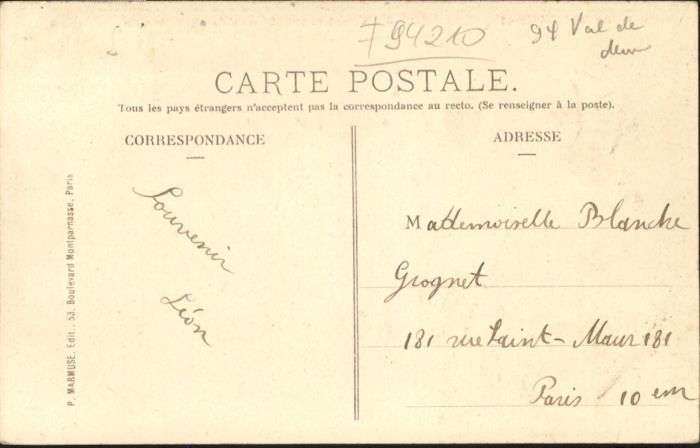 F94210
94 Val de
CARTE POSTALE.
Tous les pays étrangers n'acceptent pas la correspondance au recto. (Se renseigner à la poste).
CORRESPONDANCE
Souvenir
Léon
ADRESSE
Mademoiselle Blanche
Grognet
181 rue Saint-Maur 181
Paris 10 em
P. MARMUSE, Edit., 53, Boulevard Montparnasse, Paris